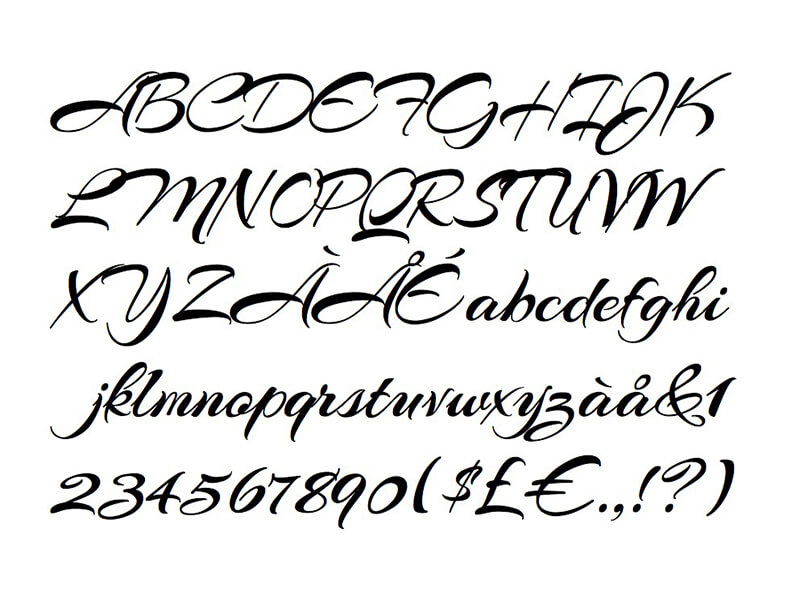 ABCDEFGHIJK
LMNOPQRSTUVW
XYZÀÅÉabcdefghi
jklmnopqrstuvwxyzàå&1
234567890($£€.,!?)